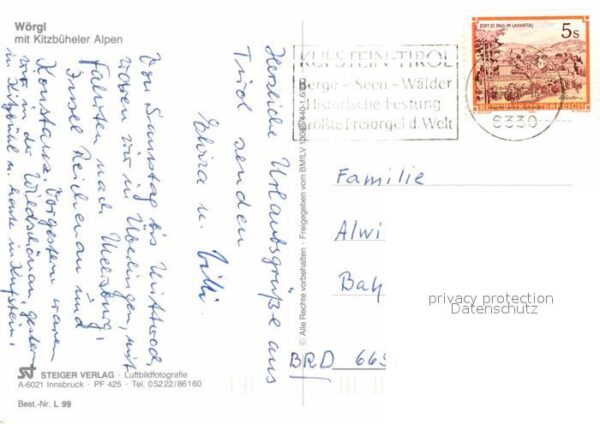 Wörgl
mit Kitzbüheler Alpen
Herzliche Urlaubsgrüße aus
Tirol senden
Elvira u. Willi.
Von Samstag bis Mittwoch
waren wir in Überlingen, mit
Fahrten nach Meersburg,
Insel Reichenau und
Konstanz. Vorgestern waren
wir in der Wildschönau, gestern
in Kitzbühl u. heute in Kufstein.
STEIGER VERLAG · Luftbildfotografie
A-6021 Innsbruck · PF 425 · Tel. 05222/86160
Best.-Nr. L 99
© Alle Rechte vorbehalten · Freigegeben vom BMfLV
KUFSTEIN-TIROL
Berge – Seen – Wälder
Historische Festung
Größte Freiorgel d. Welt
STIFT ST. PAUL IM LAVANTTAL
5 S
REPUBLIK ÖSTERREICH
6330
Familie
Alwi
Bah
BRD 665
privacy protection
Datenschutz